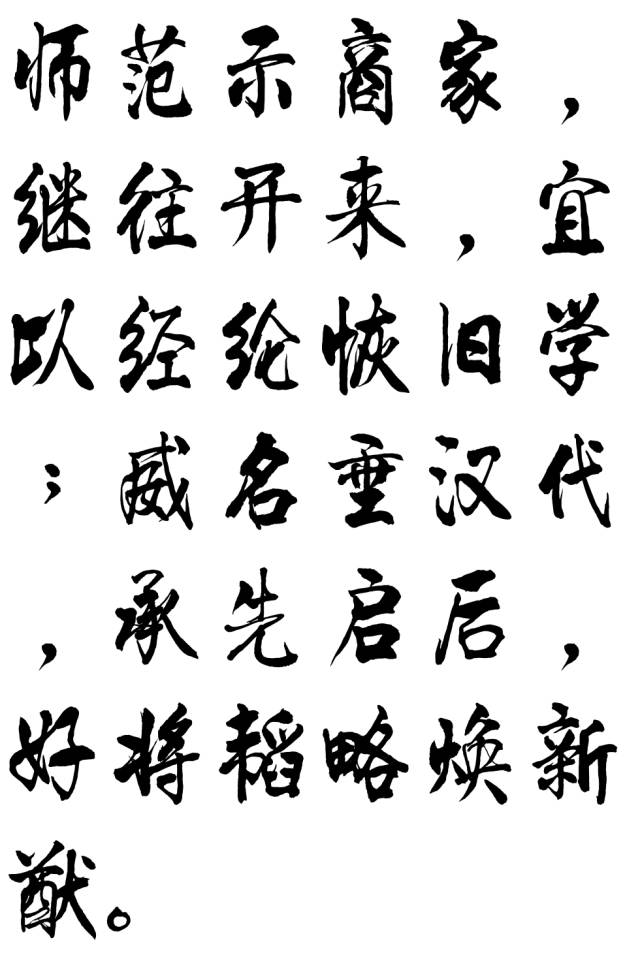 师范示商家，
继往开来，宜
以经纶恢旧学
；威名垂汉代
，承先启后，
好将韬略焕新
猷。